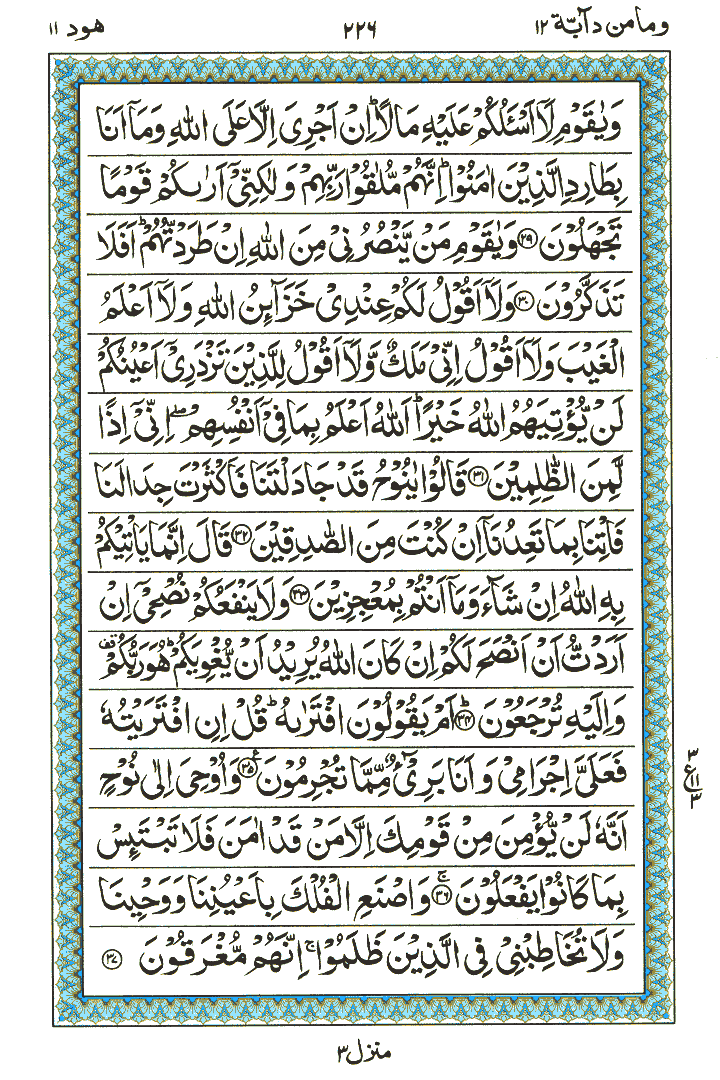 وما من دآبة ١٢ ٢٢٦ هود ١١
وَيٰقَوْمِ لَاۤ اَسْـَٔلُكُمْ عَلَيْهِ مَالًا ؕ اِنْ اَجْرِىَ اِلَّا عَلَى اللّٰهِ وَمَاۤ اَنَا
بِطَارِدِ الَّذِيْنَ اٰمَنُوْا ؕ اِنَّهُمْ مُّلٰقُوْا رَبِّهِمْ وَلٰكِنِّىْۤ اَرٰىكُمْ قَوْمًا
تَجْهَلُوْنَ ﴿٢٩﴾ وَيٰقَوْمِ مَنْ يَّنْصُرُنِىْ مِنَ اللّٰهِ اِنْ طَرَدْتُّهُمْ ؕ اَفَلَا
تَذَكَّرُوْنَ ﴿٣٠﴾ وَلَاۤ اَقُوْلُ لَكُمْ عِنْدِىْ خَزَآئِنُ اللّٰهِ وَلَاۤ اَعْلَمُ
الْغَيْبَ وَلَاۤ اَقُوْلُ اِنِّىْ مَلَكٌ وَّلَاۤ اَقُوْلُ لِلَّذِيْنَ تَزْدَرِىْۤ اَعْيُنُكُمْ
لَنْ يُّؤْتِيَهُمُ اللّٰهُ خَيْرًا ؕ اَللّٰهُ اَعْلَمُ بِمَا فِىْۤ اَنْفُسِهِمْ ۖۚ اِنِّىْۤ اِذًا
لَّمِنَ الظّٰلِمِيْنَ ﴿٣١﴾ قَالُوْا يٰنُوْحُ قَدْ جَادَلْتَنَا فَاَكْثَرْتَ جِدَالَنَا
فَاْتِنَا بِمَا تَعِدُنَاۤ اِنْ كُنْتَ مِنَ الصّٰدِقِيْنَ ﴿٣٢﴾ قَالَ اِنَّمَا يَاْتِيْكُمْ
بِهِ اللّٰهُ اِنْ شَآءَ وَمَاۤ اَنْتُمْ بِمُعْجِزِيْنَ ﴿٣٣﴾ وَلَا يَنْفَعُكُمْ نُصْحِىْۤ اِنْ
اَرَدْتُّ اَنْ اَنْصَحَ لَكُمْ اِنْ كَانَ اللّٰهُ يُرِيْدُ اَنْ يُّغْوِيَكُمْ ؕ هُوَ رَبُّكُمْ
وَاِلَيْهِ تُرْجَعُوْنَ ﴿٣٤﴾ ؕ اَمْ يَقُوْلُوْنَ افْتَرٰىهُ ؕ قُلْ اِنِ افْتَرَيْتُهٗ
فَعَلَىَّ اِجْرَامِىْ وَاَنَا بَرِىْٓءٌ مِّمَّا تُجْرِمُوْنَ ﴿٣٥﴾ ع وَاُوْحِىَ اِلٰى نُوْحٍ
٣ ع ١١ ٣
اَنَّهٗ لَنْ يُّؤْمِنَ مِنْ قَوْمِكَ اِلَّا مَنْ قَدْ اٰمَنَ فَلَا تَبْتَئِسْ
بِمَا كَانُوْا يَفْعَلُوْنَ ﴿٣٦﴾ ۚ وَاصْنَعِ الْفُلْكَ بِاَعْيُنِنَا وَوَحْيِنَا
وَلَا تُخَاطِبْنِىْ فِى الَّذِيْنَ ظَلَمُوْا ۚ اِنَّهُمْ مُّغْرَقُوْنَ ﴿٣٧﴾
منزل ٣